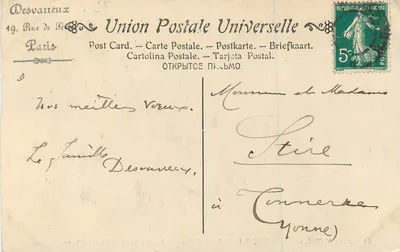 Desvareux
19, Rue de
Paris
Union Postale Universelle
Post Card. – Carte Postale. – Postkarte. – Briefkaart.
Cartolina Postale. – Tarjeta Postal.
ОТКРЫТОЕ ПИСЬМО
5c
Nos meilleurs Voeux.
La famille
Desvareux.
Monsieur et Madame
Stire
à Tonnerre
(Yonne)